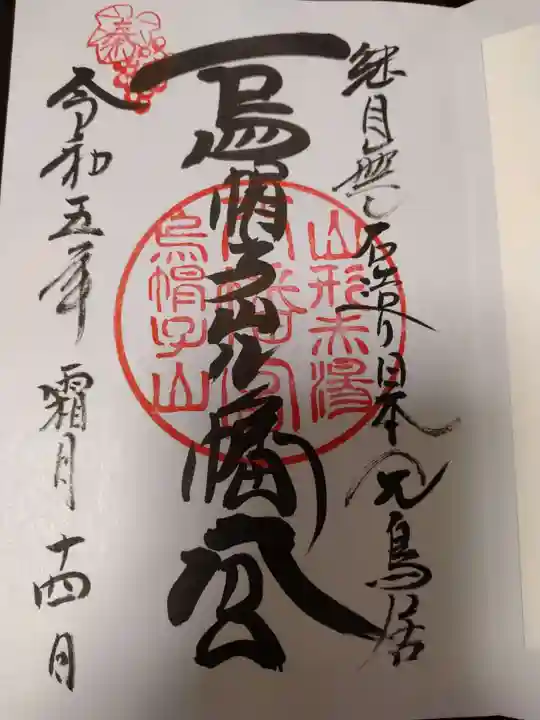 継目無し石造り日本鳥居
奉
烏帽子山八幡宮
山形赤湯
烏帽子山
令和五年 霜月 十四日